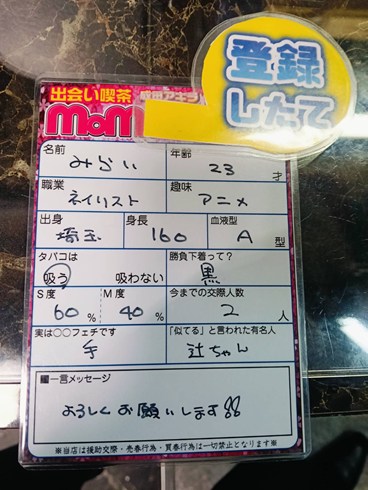 登録
したて
出会い喫茶
MoM
名前 みらい 年齢 23 才
職業 ネイリスト 趣味 アニメ
出身 埼玉 身長 160 血液型 A 型
タバコは 吸う 吸わない 勝負下着って? 黒
S度 60 % M度 40 % 今までの交際人数 2 人
実は○○フェチです 手 「似てる」と言われた有名人 辻ちゃん
■一言メッセージ
よろしくお願いします
※当店は援助交際・売春行為・買春行為は一切禁止となります※